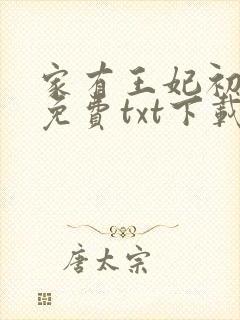 家有王妃初
免費txt下載
唐太宗